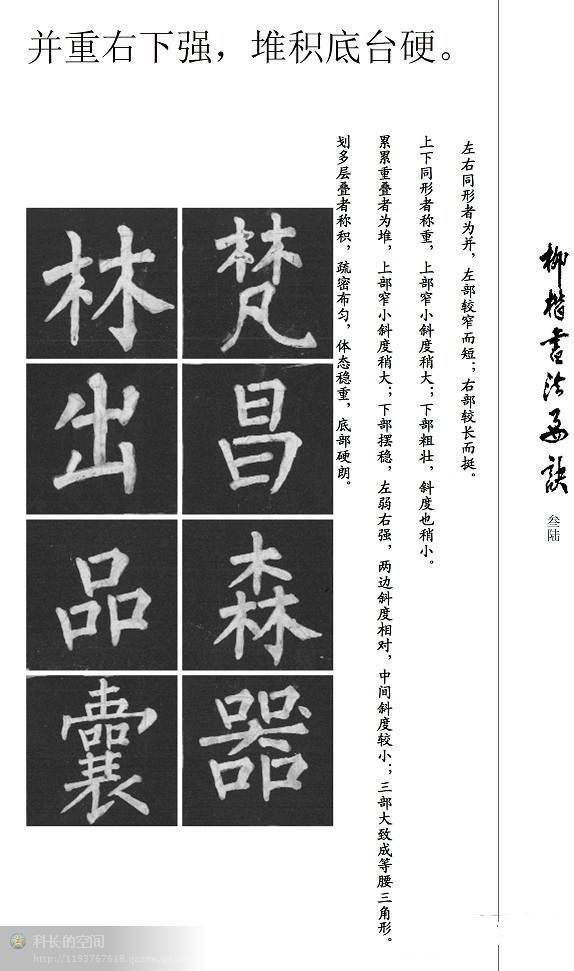 并重右下强，堆积底台硬。
柳楷书法要诀
叁陆
左右同形者为并，左部较窄而短；右部较长而挺。
上下同形者称重，上部窄小斜度稍大；下部粗壮，斜度也稍小。
累累重叠者为堆，上部窄小斜度稍大；下部摆稳，左弱右强，两边斜度相对，中间斜度较小；三部大致成等腰三角形。
划多层叠者称积，疏密布匀，体态稳重，底部硬朗。
林 梵
出 昌
品 森
囊 器
科长的空间